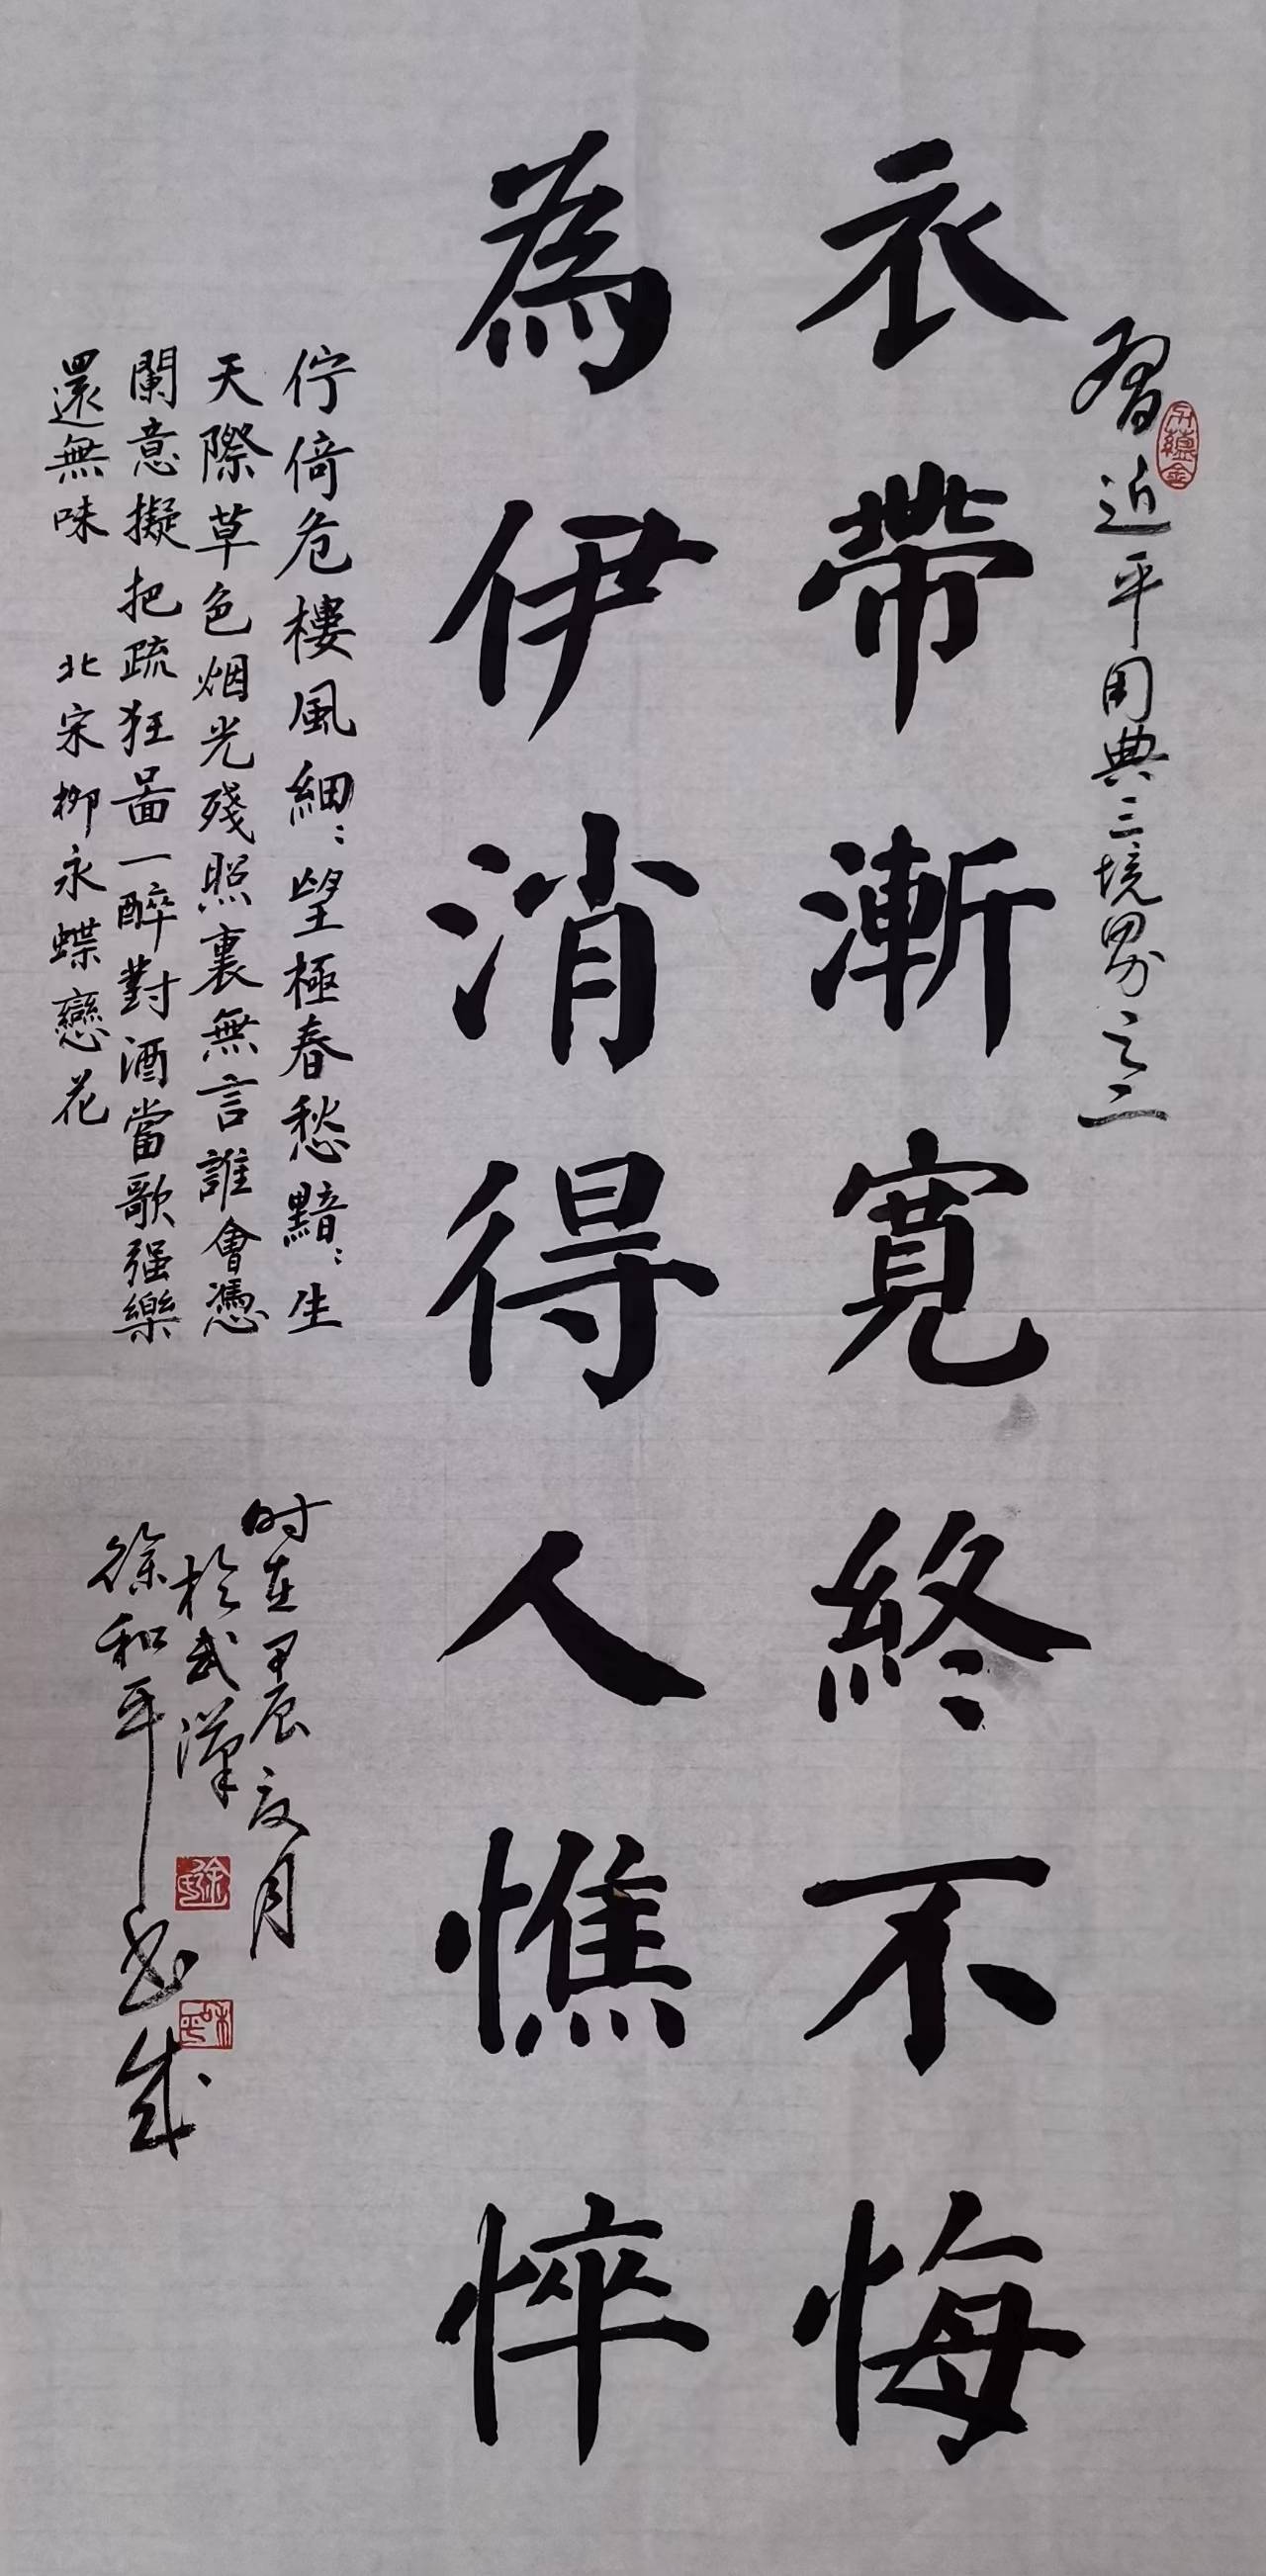 習近平用典三境界之二
衣帶漸寬終不悔
為伊消得人憔悴
佇倚危樓風細〻望極春愁黯〻生
天際草色烟光殘照裏無言誰會憑
闌意擬把疏狂啚一醉對酒當歌强樂
還無味 北宋柳永蝶戀花
时在甲辰夏月
於武漢
徐和平書
徐
和平